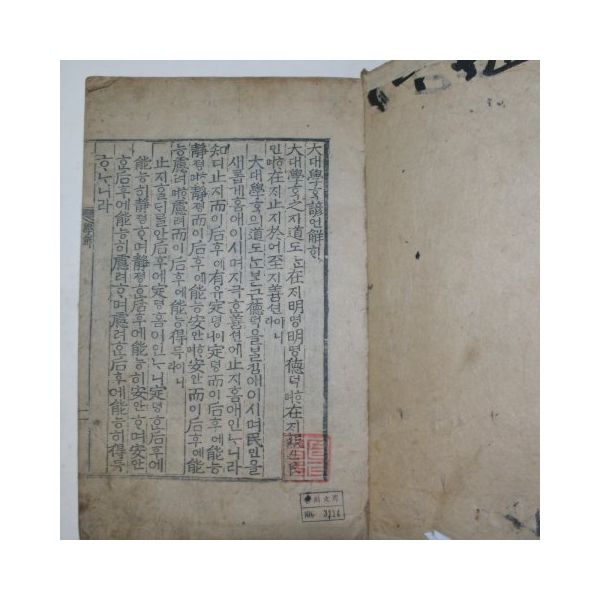 大대學학諺언解ᄒᆡ
大대學학之지道도ᄂᆞᆫ在ᄌᆡ明명明명德덕ᄒᆞ며在ᄌᆡ親신民
민ᄒᆞ며在ᄌᆡ止지於어至지善션이니라
大대學학의道도ᄂᆞᆫᄇᆞᆯ근德덕을ᄇᆞᆯ킴애이시며民민을
새롭게홈애이시며지극ᄒᆞᆫ善션에止지홈애인ᄂᆞ니라
知디止지而이后후에有유定뎡이니定뎡而이后후에能능
靜졍ᄒᆞ며靜졍而이后후에能능安안ᄒᆞ며安안而이后후에能
능慮려ᄒᆞ며慮려而이后후에能능得득이니라
止지ᄒᆞᆯᄃᆡᄅᆞᆯ안后후에定뎡홈이인ᄂᆞ니定뎡ᄒᆞᆫ后후에
能능히靜졍ᄒᆞ며靜졍ᄒᆞᆫ后후에能능히安안ᄒᆞ며安안
ᄒᆞᆫ后후에能능히慮려ᄒᆞ며慮려ᄒᆞᆫ后후에能능히得득
ᄒᆞᄂᆞ니라